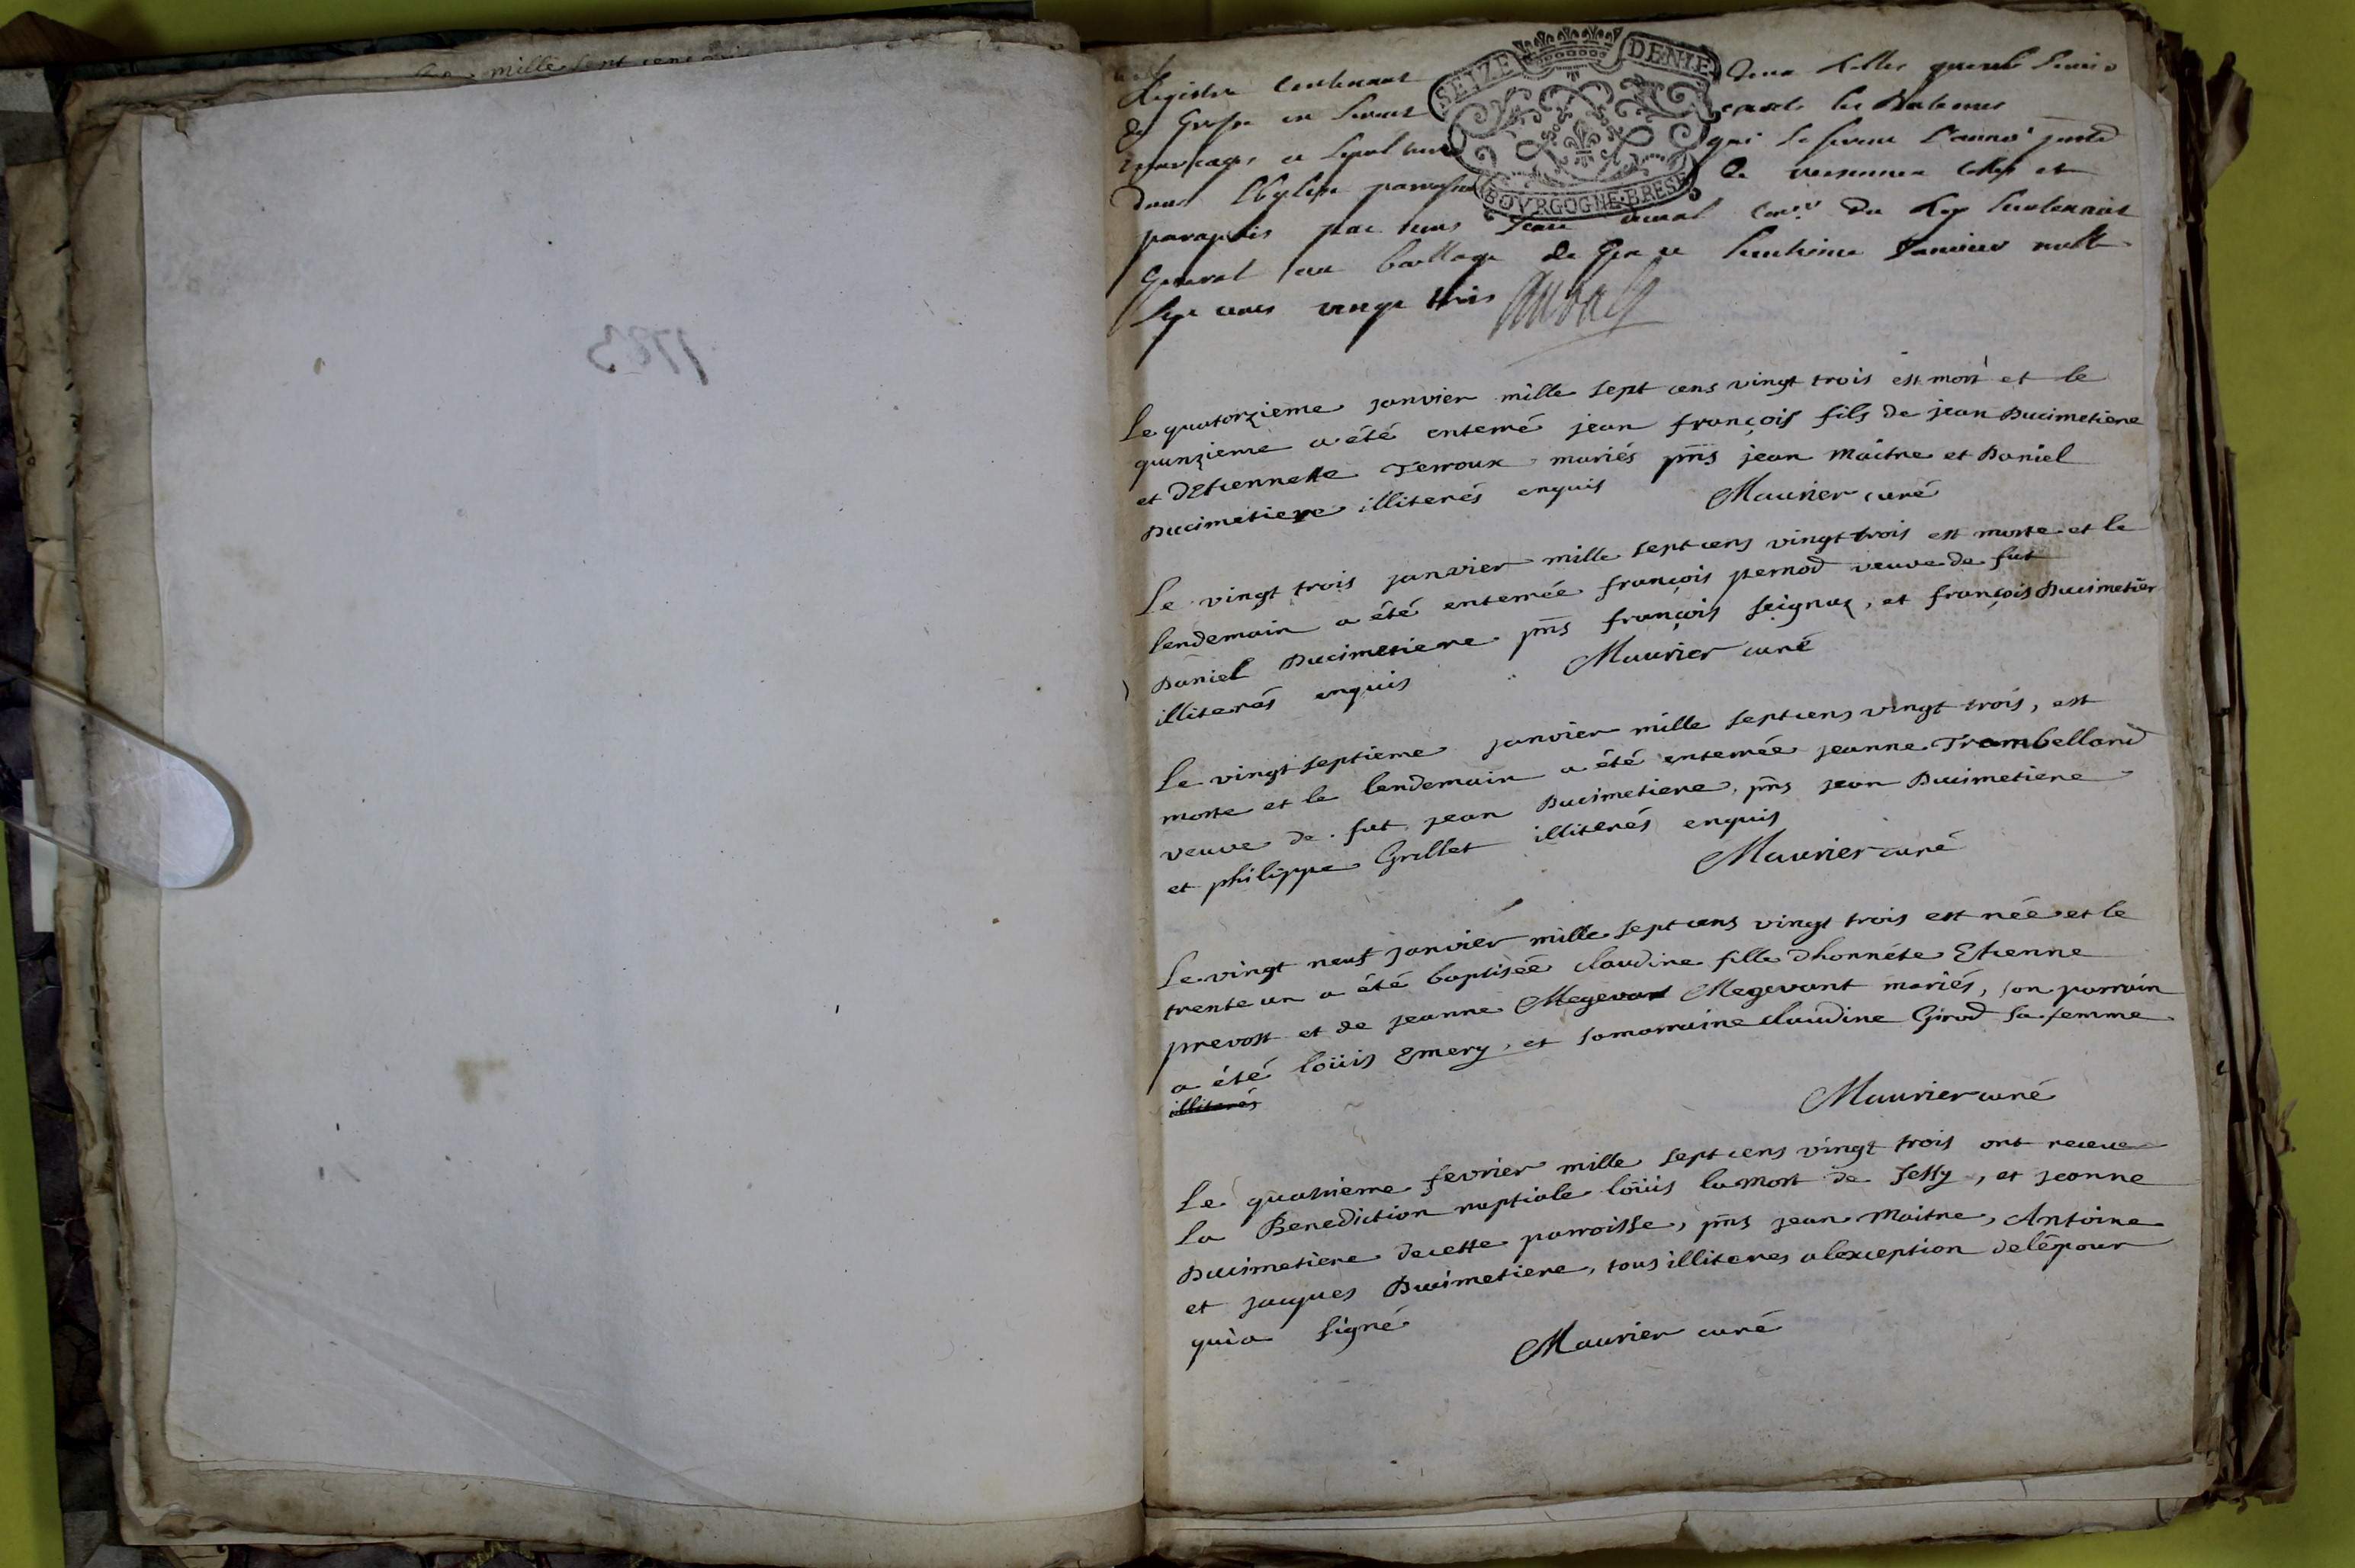 mille sept cens
1723
SEIZE DENIE
BOVRGOGNE·BRESE
Registre contenant deux
de
mariages et sepultures qui se feront l'année
dans l'Eglise de
paraphés par nous Jean du Roy Lieutenant
General au baillage de Gex ce Janvier mille
sept cens vingt trois
Le quatorzieme janvier mille sept cens vingt trois est mort et le
quinzieme a été enterré jean françois fils de jean Ducimetiere
et dEtiennette Terroux mariés pn̄s jean Maitre et Daniel
Ducimetiere illiterés enquis Maurier curé
Le vingt trois janvier mille sept cens vingt trois est morte et le
lendemain a été enterrée françois pernod veuve de fut
Daniel Ducimetiere pn̄s françois seignoz, et françois Ducimetier
illiterés enquis Maurier curé
Le vingt septieme janvier mille sept cens vingt trois, est
morte et le lendemain a été enterrée jeanne Trambelland
veuve de fut jean Ducimetiere, pn̄s jean Ducimetiere
et philippe Grillet illiterés enquis
Maurier curé
Le vingt neuf janvier mille sept cens vingt trois est née et le
trente un a été baptisée claudine fille dhonnéte Etienne
prevost et de jeanne Megevant Megevant mariés, son parrain
a été loüis Emery, et sa marraine claudine Girod sa femme
illiterés
Maurier curé
Le quatrieme fevrier mille sept cens vingt trois ont receue
la Benediction nuptiale loüis lamort de Jessy, et jeanne
Ducimetiere de cette parroisse, pn̄s jean Maitre, Antoine
et jacques Ducimetiere, tous illiteres a lexception de lépour
qui a signé Maurier curé